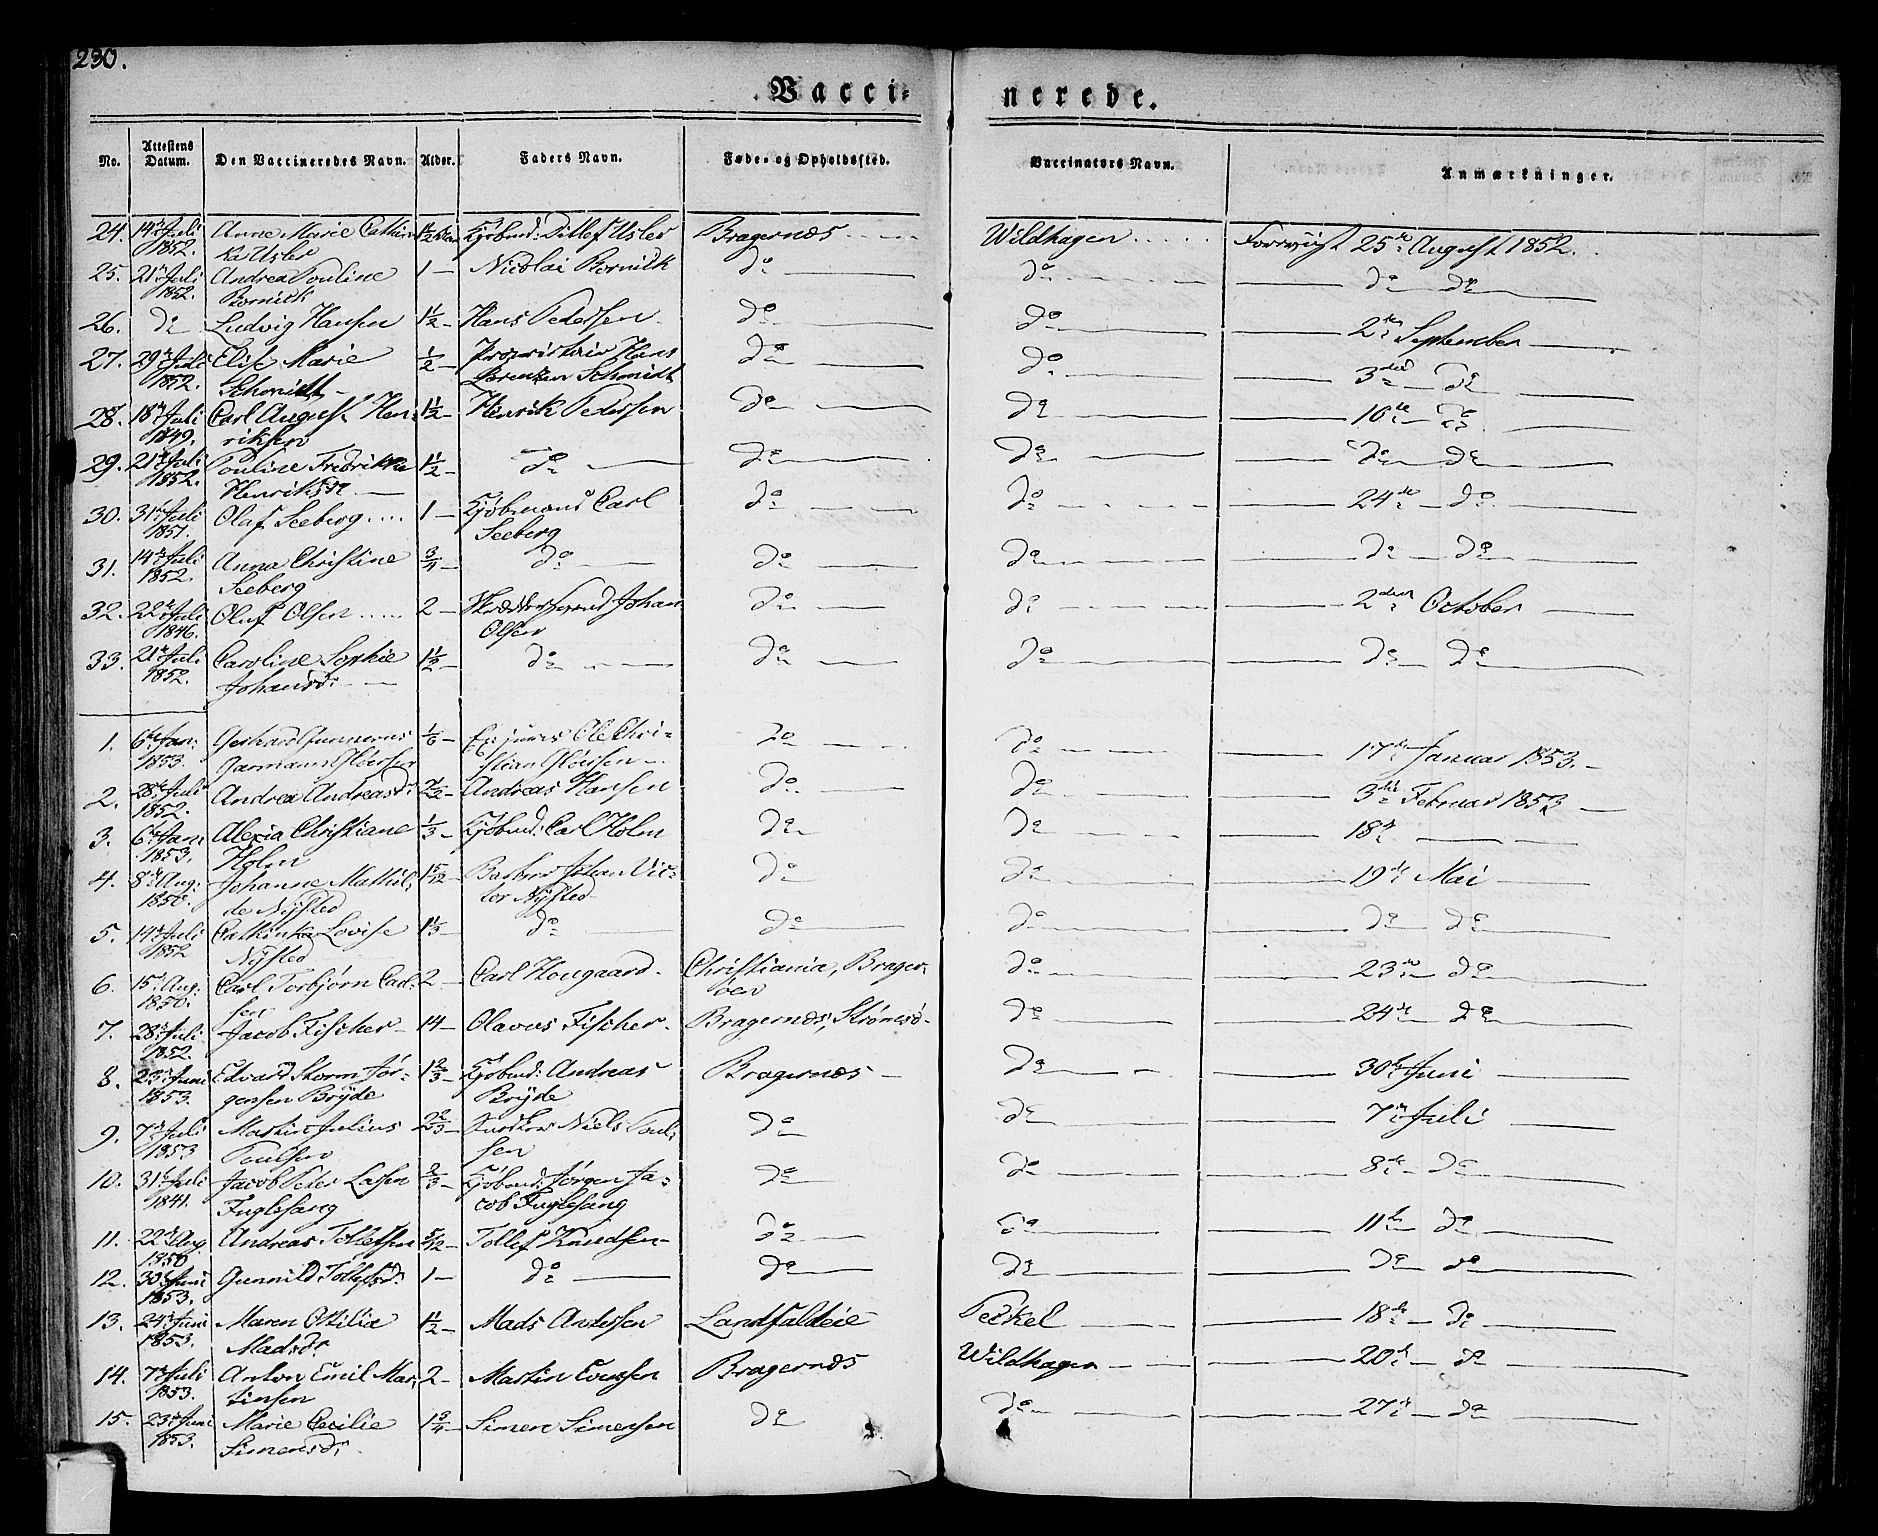 230.
Vacci- nerede.
No. Attestens Datum. Den Vaccineredes Navn. Alder. Faders Navn. Føde- og Opholdssted. Vaccinators Navn. Anmærkninger.
24. 14de Juli Anne Marie Cathin 1½ Kjøbmd: Ditlef Usler Bragernæs Wildhagen Forevist 25de August 1852.
1852. ka Usler
25. 21de Juli Andrea Pouline 1 Nicolai do do do do
1852.
26. do Ludvig Hansen 1½ Hans Pedersen do do 2den September
27. 29de Juli Elise Marie ½ Proprietair Hans do do 3die do
1852. Schmidt Lorentzen Schmidt
28. 18de Juli Carl August Hen- 1½ Henrik Pedersen do do 16de do
1849. riksen
29. 21de Juli Pouline Fredrikke 1½ do do do do do
1852. Henriksdr
30. 31te Juli Olaf Seeberg 1 Kjøbmand Carl do do 24de do
1851. Seeberg
31. 14de Juli Anna Christine ¾ do do do do do
1852. Seeberg
32. 22de Juli Oluf Olsen 2 Skræddersvend Johan do do 2den October
1846. Olsen
33. 21de Juli Caroline Sophie 1½ do do do do do
1852. Johansdr
1. 6te Jan: Gerhard Gunnerus 1/6 Ole Chri- do do 17de Januar 1853.
1853. stian
2. 28de Juli Andrea Andreasdr 7/12 Andreas Hansen do do 3die Februar 1853
1852.
3. 6te Jan: Alexia Christiane 1/3 Kjøbmd: Carl Holm do do 18de
1853. Holm
4. 8de Aug: Johanne Mathil- Barber Johan Vic- do do 19de Mai
1850. de Nysted tor Nysted
5. 14de Juli Cathinka Lovise do do do do do
1852 Nysted
6. 15de Aug: Carl Torbjørn Carl- 2 Carl Hougaard Christiania, Brager- do 23de do
1850. sen øen
7. 28de Juli Jacob Fischer 14 Olavus Fischer Bragernæs, Strømsø do 24de do
1852.
8. 23de Juni Edvard Storm Jør- 1⅔ Kjøbmd: Andreas Bragernæs do 30te Juni
1853. gensen Bryde Bryde
9. 7de Juli Martin Julius 2⅔ Niels Poul- do do 7de Juli
1853 Poulsen sen
10. 31te Juli Jacob Peter Lassen ⅔ Kjøbmd: Jørgen Ja- do do 8de do
1841. Fuglesang cob Fuglesang
11. 22de Aug Andreas Tollefsen 5/12 Tollef Knudsen do do 11te do
1850
12. 30te Juni Gunnild Tollefsdr 1 do do do do do
1853.
13. 24de Juni Maren Otilia 1½ Mads Andersen Landfaldøie Peckel 18de do
1853. Madsdr
14. 7de Juli Anton Emil Mar- 2 Martin Evensen Bragernæs Wildhagen 20de do
1853. tinsen
15. 23de Juni Marie Cecilie 1¾ Simen Simensen do do 27de do
1853. Simensdr